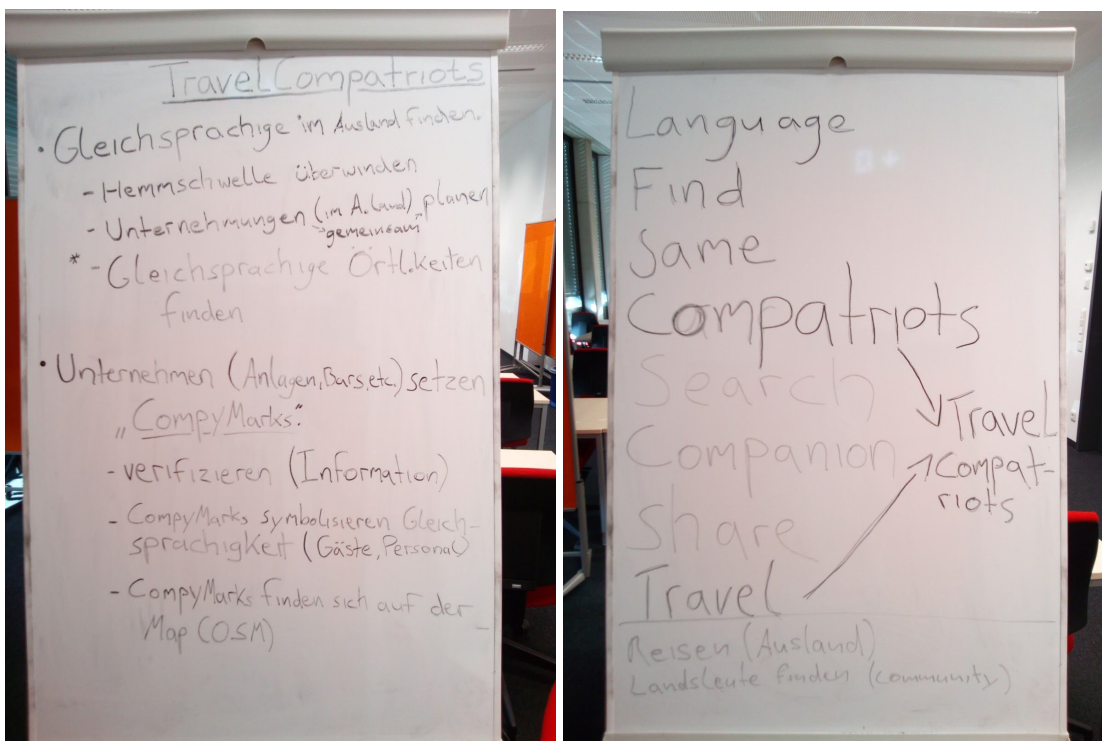 TravelCompatriots
• Gleichsprachige im Ausland finden.
- Hemmschwelle überwinden
- Unternehmungen (im A.land) planen
"gemeinsam"
* - Gleichsprachige Örtl.keiten
finden
• Unternehmen (Anlagen, Bars, etc.) setzen
„CompyMarks":
- verifizieren (Information)
- CompyMarks symbolisieren Gleich-
sprachigkeit (Gäste, Personal)
- CompyMarks finden sich auf der
Map (OSM)
Language
Find
Same
Compatriots
Search
Companion
Share
Travel
Travel
Compat-
riots
Reisen (Ausland)
Landsleute finden (community)